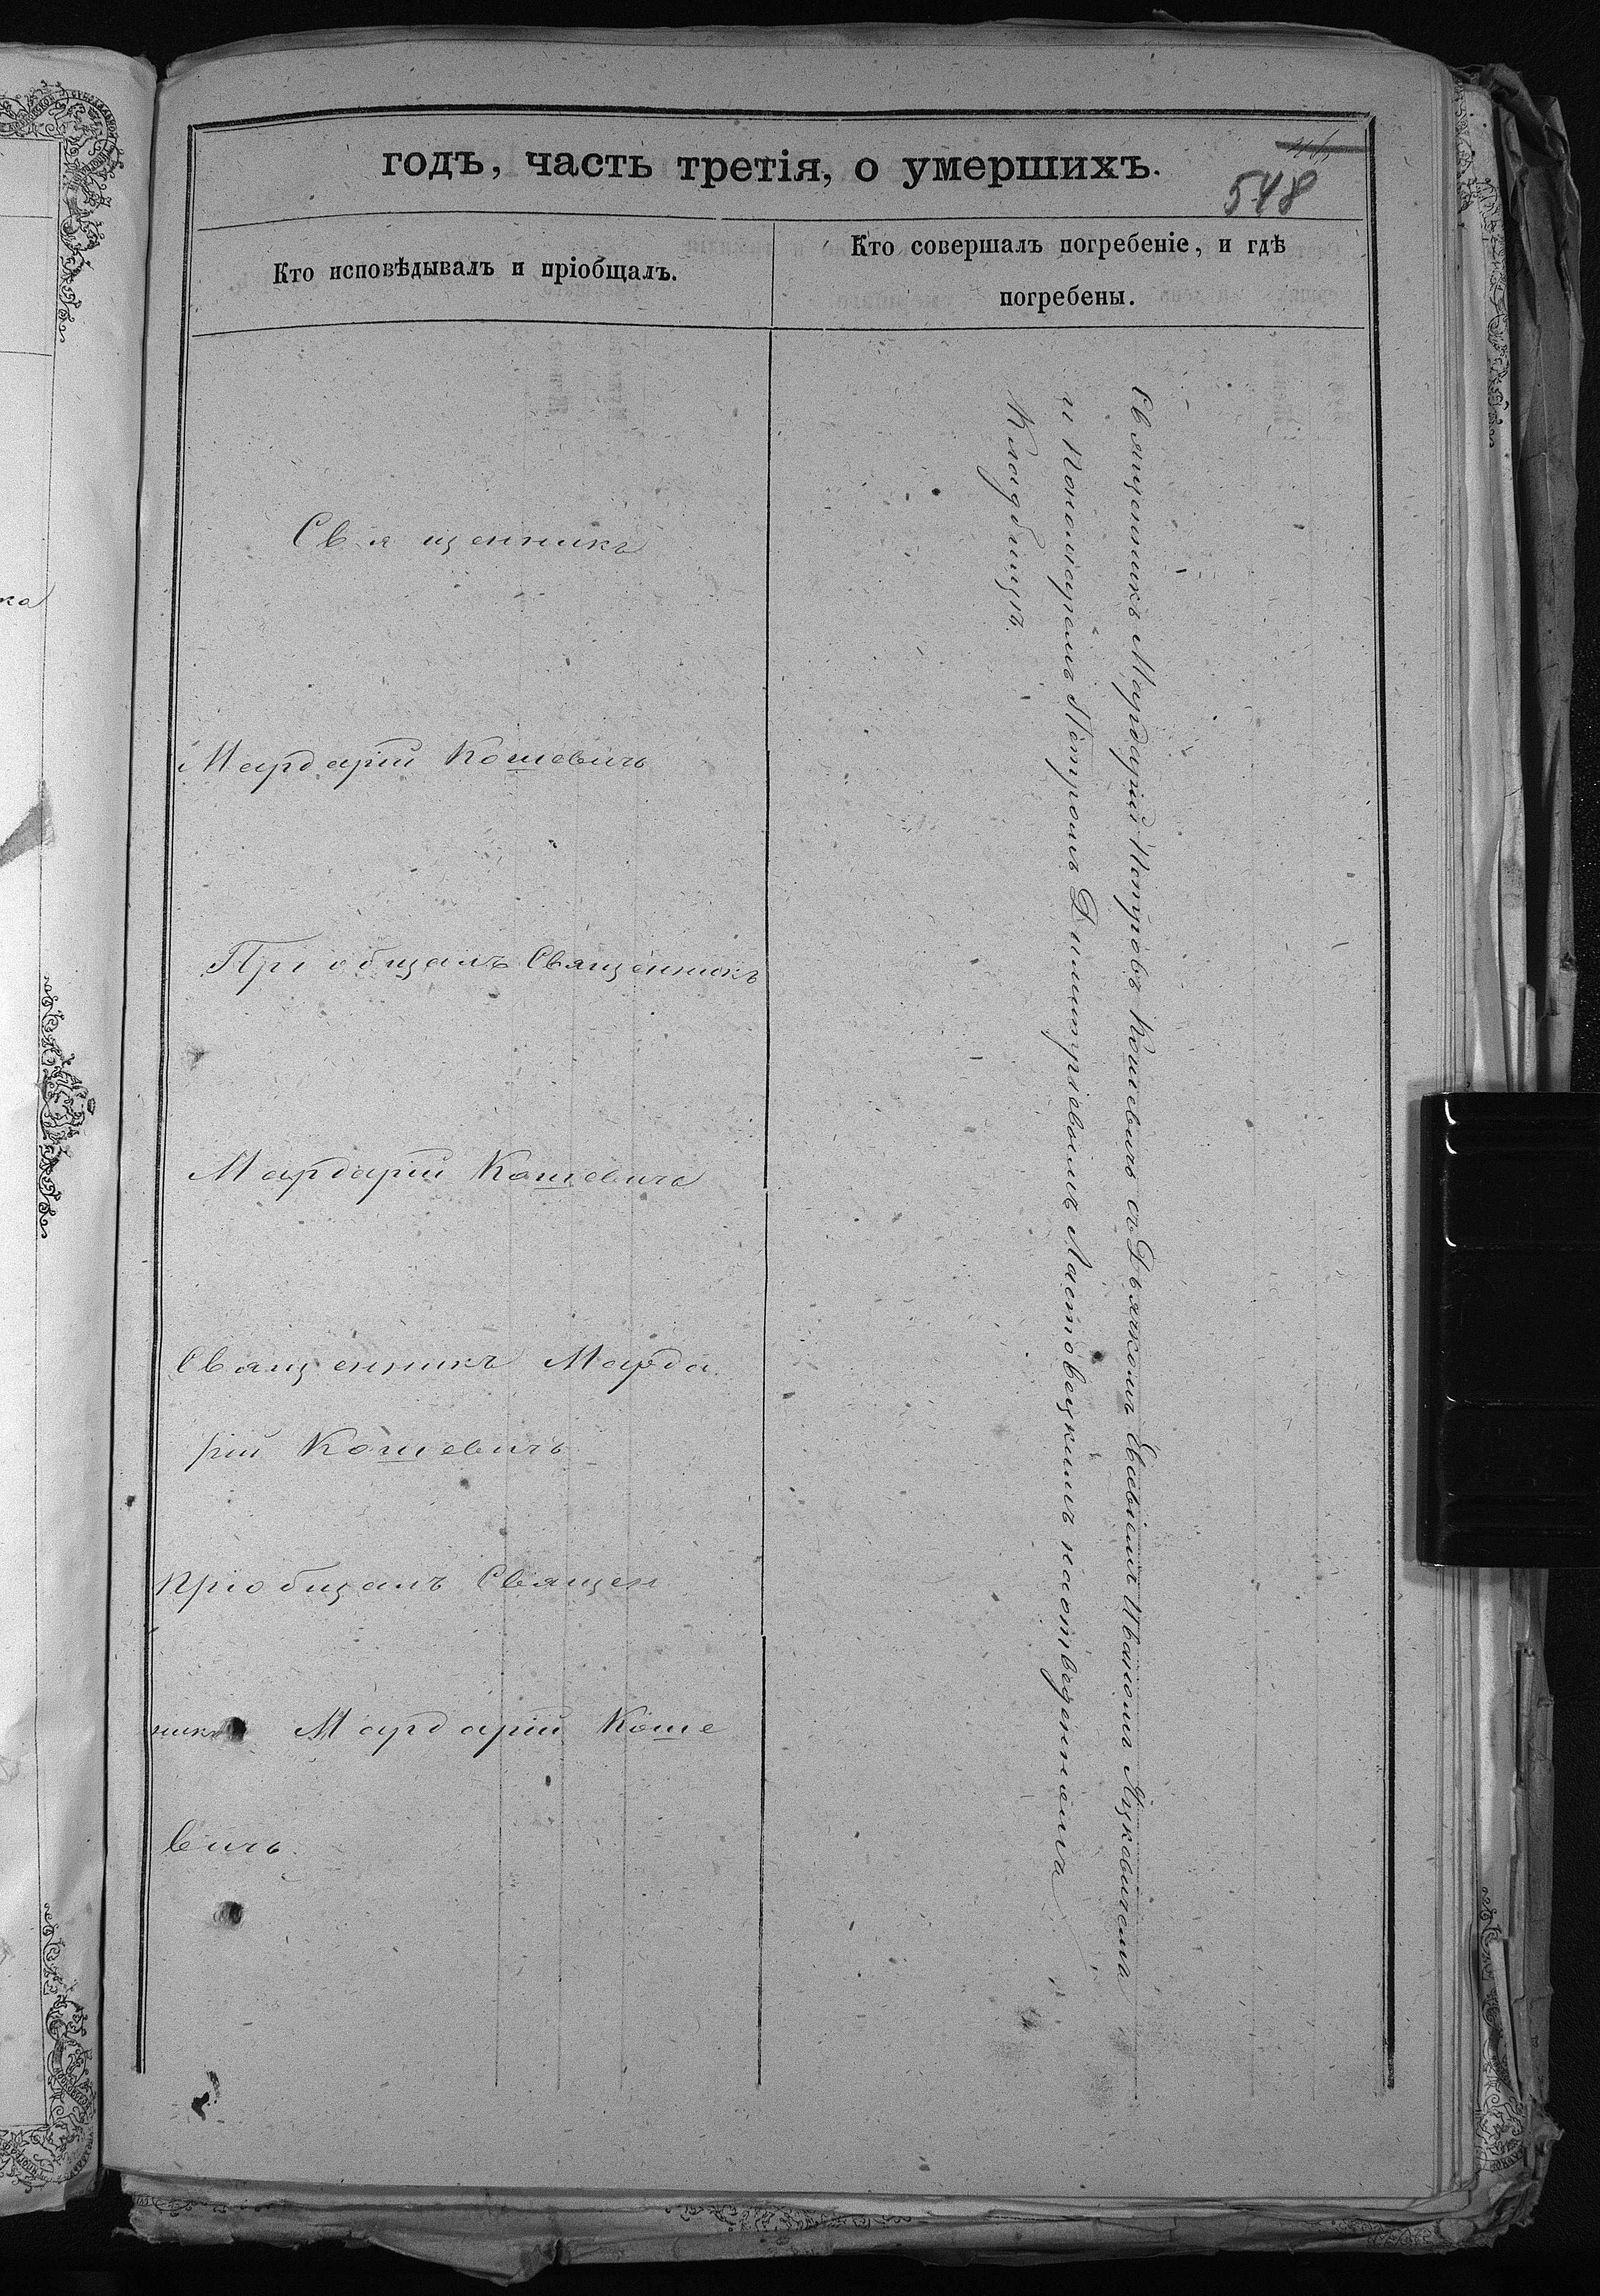 годъ, часть третія, о умершихъ.
548
Кто исповѣдывалъ и пріобщалъ.
Кто совершалъ погребеніе, и гдѣ
погребены.
Священникъ
Мардарій Кошевичъ
Пріобщалъ Священникъ
Мардарій Кошевичъ
Священникъ Марда
рій Кошевичъ
Пріобщалъ Священ
никъ Мардарій Коше
вичъ.
Священникъ Мардарій Петровъ Кошевичъ съ Дьячкомъ Евсевіемъ Ивановымъ Яцкевичемъ
и Пономаремъ Петромъ Димитріевымъ Ластовецкимъ на отведенномъ
Кладбищѣ.